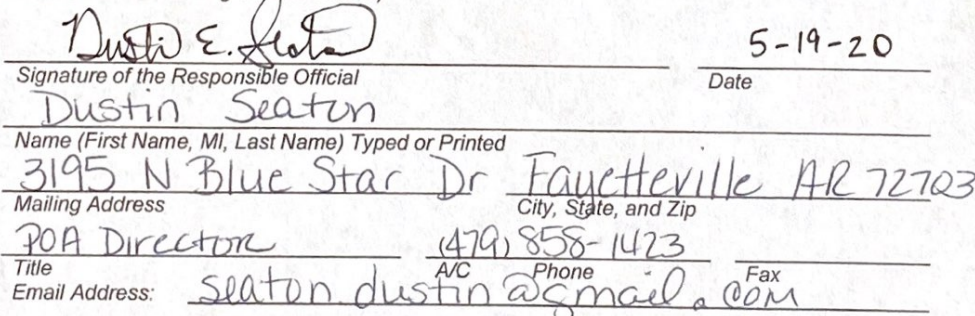 Dustin E. Seaton 5-19-20
Signature of the Responsible Official Date
Dustin Seaton
Name (First Name, MI, Last Name) Typed or Printed
3195 N Blue Star Dr Fayetteville AR 72703
Mailing Address City, State, and Zip
POA Director (479) 858-1423
Title A/C Phone Fax
Email Address: seaton dustin @gmail.com